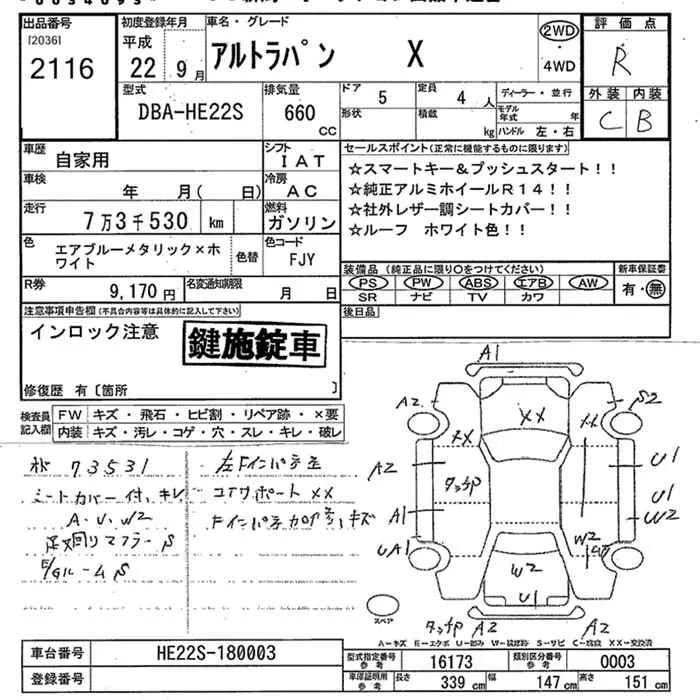 出品番号
[2036]
2116
初度登録年月
平成
22年 9月
車名・グレード
アルトラパン X
2WD
・
4WD
評価点
R
外装 内装
C B
型式
DBA-HE22S
排気量
660 CC
ドア 5
形状
定員 4 人
積載 kg
ディーラー・並行
モデル年式 年
ハンドル 左・右
車歴
自家用
シフト
IAT
車検
年 月( 日)
冷房
AC
走行
7万3千530 km
燃料
ガソリン
色
エアブルーメタリック×ホワイト
色替
色コード
FJY
R券
9,170 円
名変通知期限
月 日
セールスポイント(正常に機能するものに限ります)
☆スマートキー&プッシュスタート!!
☆純正アルミホイールR14!!
☆社外レザー調シートカバー!!
☆ルーフ ホワイト色!!
装備品(純正品に限り○をつけてください)
PS PW ABS エアB AW
SR ナビ TV カワ
新車保証書
有・無
後日品
注意事項申告欄(不具合内容等は具体的に記入して下さい)
インロック注意
鍵施錠車
修復歴 有〔箇所 〕
検査員記入欄
FW キズ・飛石・ヒビ割・リペア跡・×要
内装 キズ・汚レ・コゲ・穴・スレ・キレ・破レ
73531
シートカバー付、キレ
A・U、W2
足廻りマフラーS
左Fインパネ
コアサポートXX
キズ
A1
A2
S2
XX
XX
XX
A2
タッチ印
U1
U1
A1
W2
UA1
W2
W2
U1
スペア
タッチ印 A2
A2
A-キズ E-エクボ U-凹み W-波修跡 S-サビ C-腐食 XX-交換済
車台番号
HE22S-180003
登録番号
型式指定番号
参考
16173
類別区分番号
参考
0003
車庫証明用
参考
長さ
339 cm
幅
147 cm
高さ
151 cm